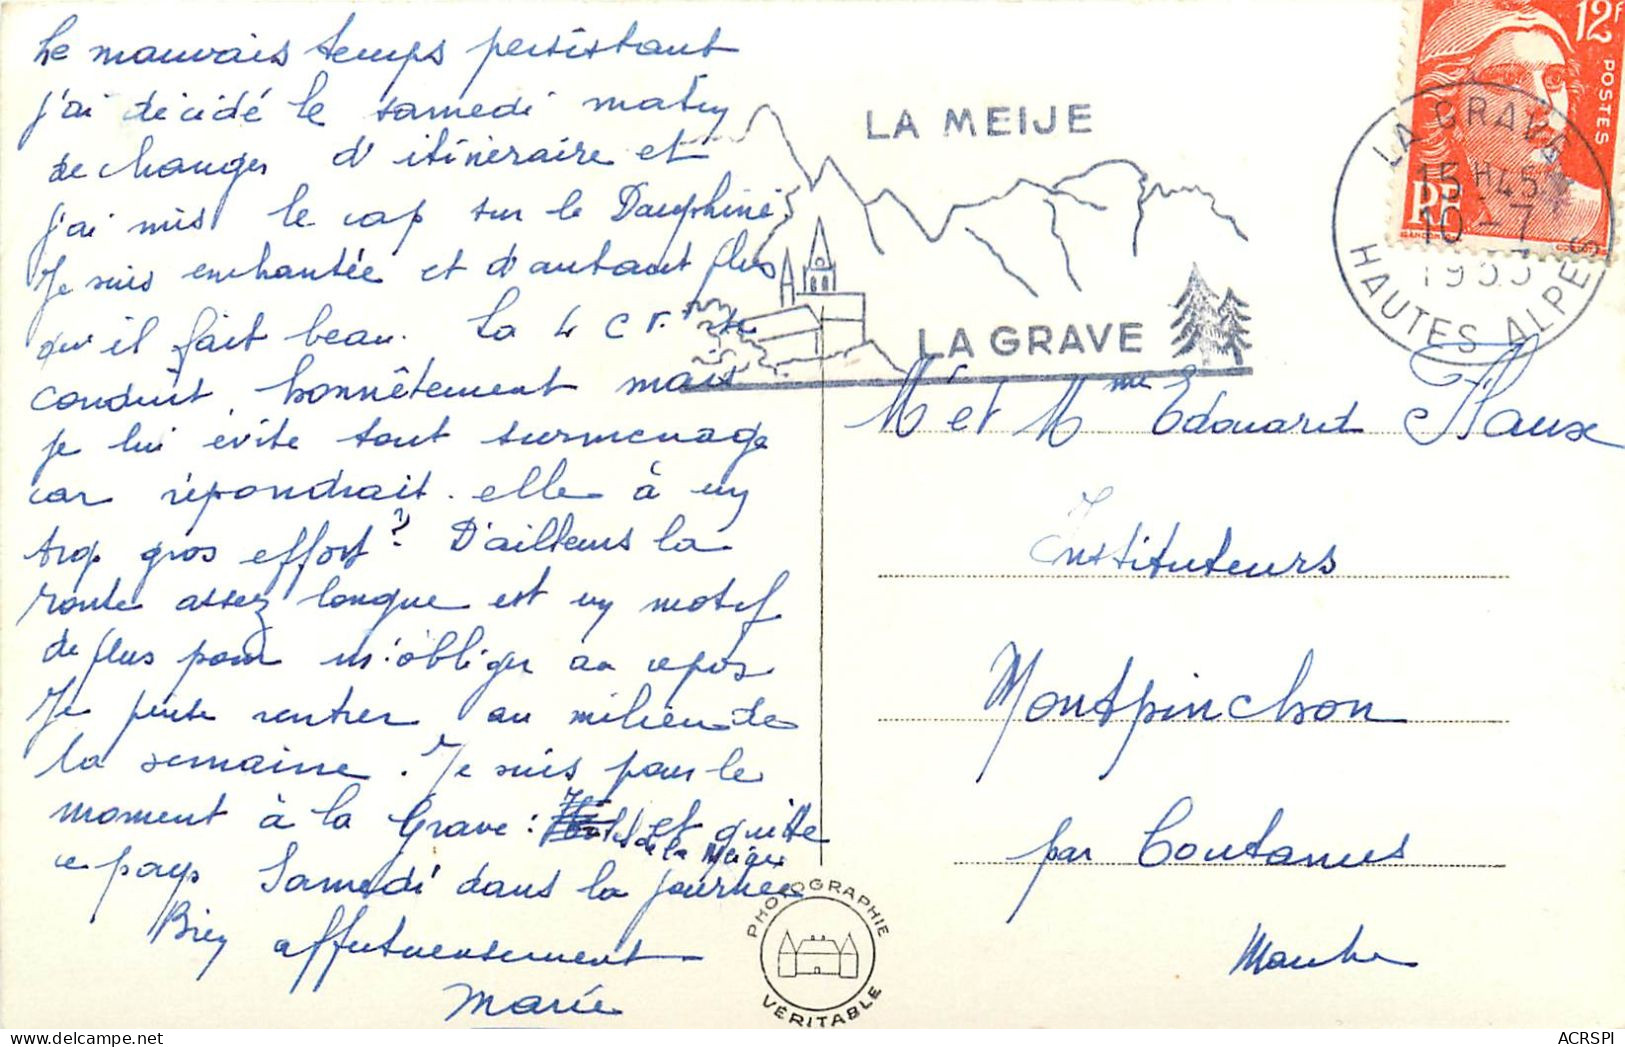 Le mauvais temps persistant
j'ai décidé le samedi matin
de changer d'itinéraire et
j'ai mis le cap sur le Dauphiné
Je suis enchantée et d'autant plus
qu'il fait beau. La 4 CV. se
conduit honnêtement mais
je lui évite tout surmenage
car répondrait-elle à un
trop gros effort? D'ailleurs la
route assez longue est un motif
de plus pour m'obliger au repos
Je pense rentrer au milieu de
la semaine. Je suis pour le
moment à la Grave: et quitte
de la Meije
ce pays Samedi dans la journée
Bien affectueusement
Marie
LA MEIJE
LA GRAVE
12F
POSTES
RF
LA GRAVE
15H45
10-7
HAUTES ALPES
Mr et Mme Edouard
Instituteurs
Montpinchon
par Coutances
Manche
PHOTOGRAPHIE
VÉRITABLE
ACRSPI